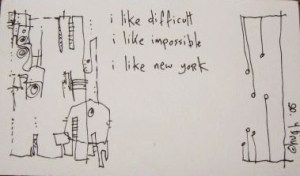 i like difficult
i like impossible
i like new york